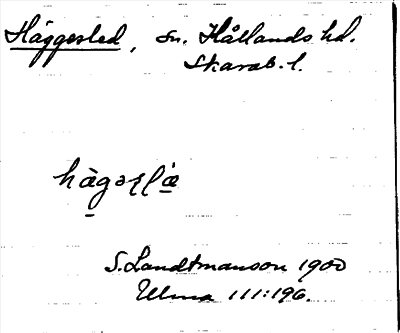 Häggesled, sn. Kållands hd.
Skarab. l.
hàgəs̨l̨æ̀
S. Landtmanson 1900
Ulma 111:196.